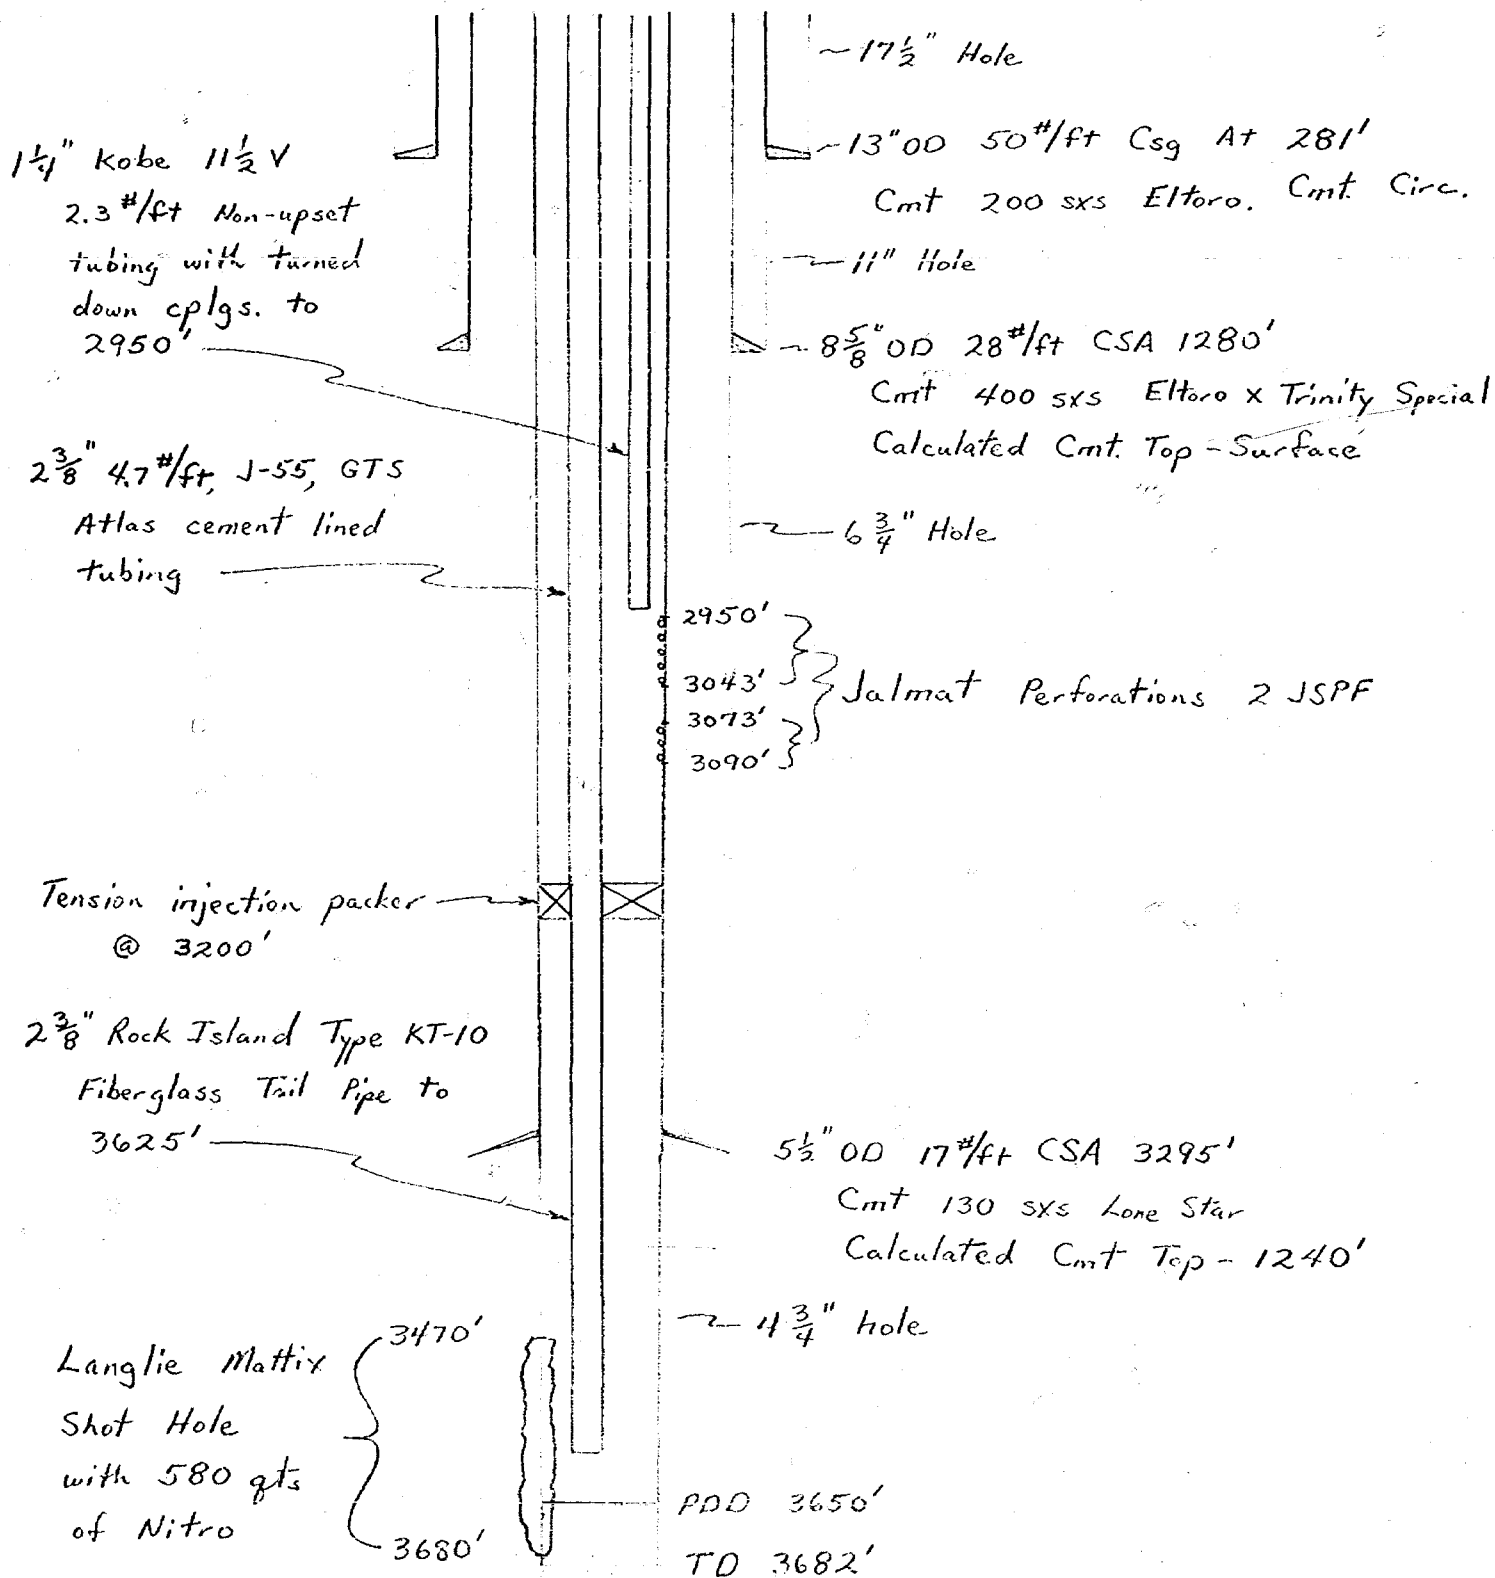 17½" Hole
1¼" Kobe 11½ V
2.3 #/ft Non-upset
tubing with turned
down cplgs. to
2950'
13" OD 50#/ft Csg At 281'
Cmt 200 sxs Eltoro. Cmt. Circ.
11" Hole
8⅝" OD 28#/ft CSA 1280'
Cmt 400 sxs Eltoro x Trinity Special
Calculated Cmt. Top - Surface
2⅜" 4.7#/ft, J-55, GTS
Atlas cement lined
tubing
6¾" Hole
2950'
3043'
3073'
3090'
Jalmat Perforations 2 JSPF
Tension injection packer
@ 3200'
2⅜" Rock Island Type KT-10
Fiberglass Tail Pipe to
3625'
5½" OD 17#/ft CSA 3295'
Cmt 130 sxs Lone Star
Calculated Cmt Top - 1240'
4¾" hole
3470'
Langlie Mattix
Shot Hole
with 580 qts
of Nitro
3680'
PDD 3650'
TD 3682'